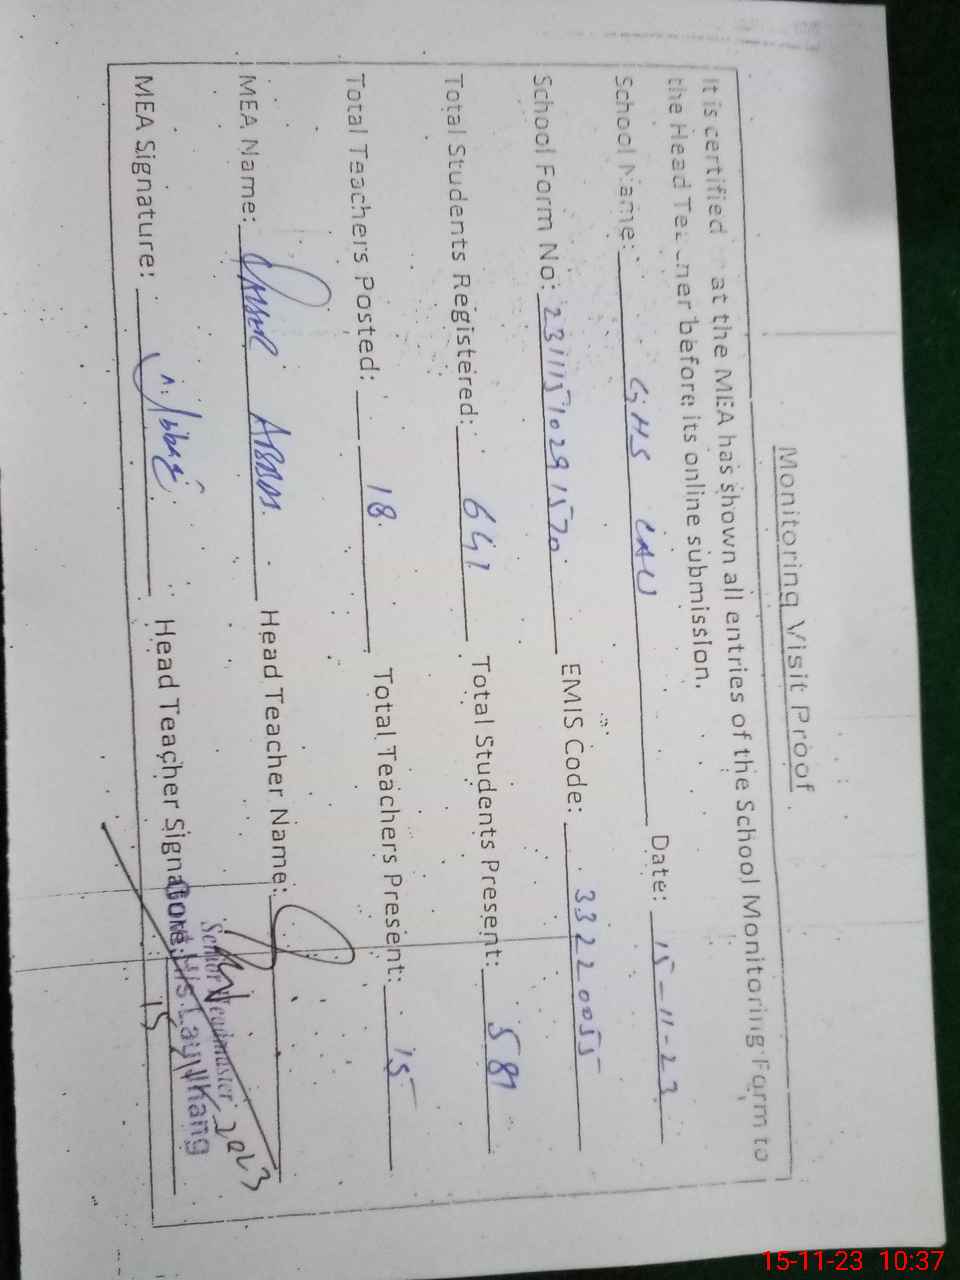 Monitoring Visit Proof
It is certified at the MEA has shown all entries of the School Monitoring Form to
the Head Teacher before its online submission.
School Name: GHS LAU Date: 15-11-23
School Form No: 23111510291570 EMIS Code: 33220055
Total Students Registered: 641 Total Students Present: 581
Total Teachers Posted: 18 Total Teachers Present: 15
MEA Name: YASSER ABBAS Head Teacher Name:
MEA Signature: Head Teacher Signature:
Senior Headmaster
Govt. H/S. Lau Jhang
15 11 2023
15-11-23 10:37